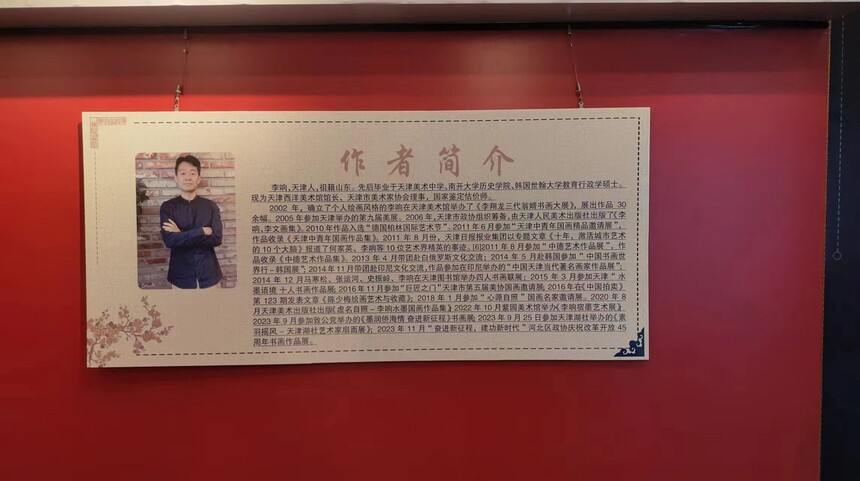 作者简介
李响，天津人，祖籍山东。先后毕业于天津美术中学，南开大学历史学院、韩国世翰大学教育行政学硕士。
现为天津西洋美术馆馆长、天津市美术家协会理事，国家鉴定估价师。
2002 年，确立了个人绘画风格的李响在天津美术馆举办了《李翔龙三代翁婿书画大展》，展出作品 30
余幅。2005 年参加天津举办的第九届美展。2006 年，天津市政协组织筹备，由天津人民美术出版社出版了《李
响、李文画集》。2010 年作品入选“德国柏林国际艺术节”。2011 年 6 月参加“天津中青年国画精品邀请展”，
作品收录《天津中青年国画作品集》。2011 年 8 月份，天津日报报业集团以专题文章《十年，激活城市艺术
的 10 个大脑》报道了何家英、李响等 10 位艺术界精英的事迹。同2011 年 8 月参加“中德艺术作品展”，作
品收录《中德艺术作品集》。2013 年 4 月带团赴白俄罗斯文化交流；2014 年 5 月赴韩国参加“中国书画世
界行 – 韩国展”；2014 年 11 月带团赴印尼文化交流，作品参加在印尼举办的“中国天津当代著名画家作品展”；
2014 年 12 月马寒松、张运河、史振岭、李响在天津图书馆举办四人书画联展；2015 年 3 月参加天津“水
墨语境 十人书画作品展；2016 年 11 月参加“巨匠之门”天津市第五届美协国画邀请展；2016 年在《中国拍卖》
第 123 期发表文章《陈少梅绘画艺术与收藏》；2018 年 1 月参加“心源自照”国画名家邀请展。2020 年 8
月天津美术出版社出版《虚名自照 – 李响水墨国画作品集》2022 年 10 月紫园美术馆举办《李响宿墨艺术展》
2023 年 9 月参加致公党举办的《墨润侨海情 奋进新征程》书画展；2023 年 9 月 25 日参加天津湖社举办的《素
羽摇风 – 天津湖社艺术家扇面展》；2023 年 11 月“奋进新征程，建功新时代”河北区政协庆祝改革开放 45
周年书画作品展。